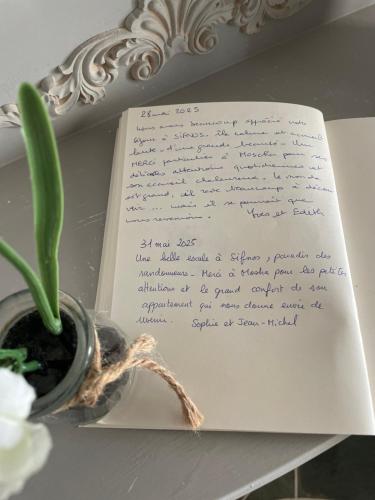 28 mai 2025
Nous avons beaucoup apprécié notre
séjour à SIFNOS. île calme et accueil
d'une grande beauté - Un
MERCI particulier à Moscha pour ses
délicates attentions quotidiennes et
son accueil chaleureux. Le monde
est grand, il reste beaucoup à décou
vrir ... mais il se pourrait que
nous revenions. Yves et Edith
31 mai 2025
Une belle escale à Sifnos, paradis des
randonneurs - Merci à Mosha pour les petites
attentions et le grand confort de son
appartement qui nous donne envie de
revenir. Sophie et Jean-Michel